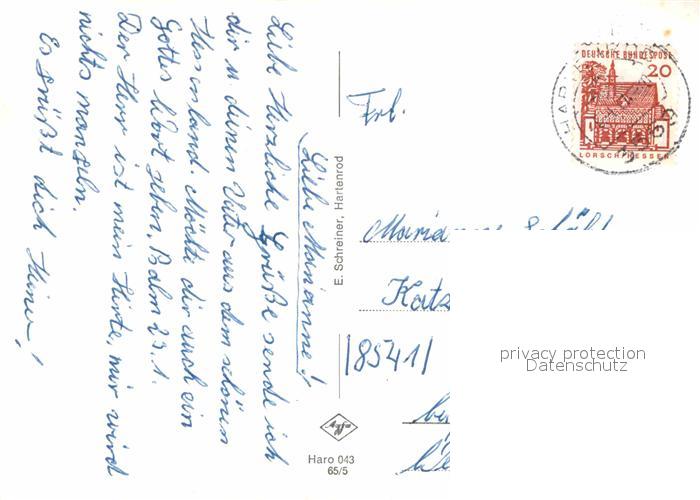 Liebe Marianne!
Liebe Herzliche Grüße sende ich
dir u deinen Vater aus dem schönen
Hessenland. Möchte dir auch ein
Gottes Wort gebn, Psalm 23.1.
Der Herr ist mein Hirte, mir wird
nichts mangeln.
Es grüßt dich Heiner!
E. Schreiner, Hartenrod
Agfa
Haro 043
65/5
DEUTSCHE BUNDESPOST
20
LORSCH/HESSEN
Frl.
Katz
|8541|
privacy protection
Datenschutz